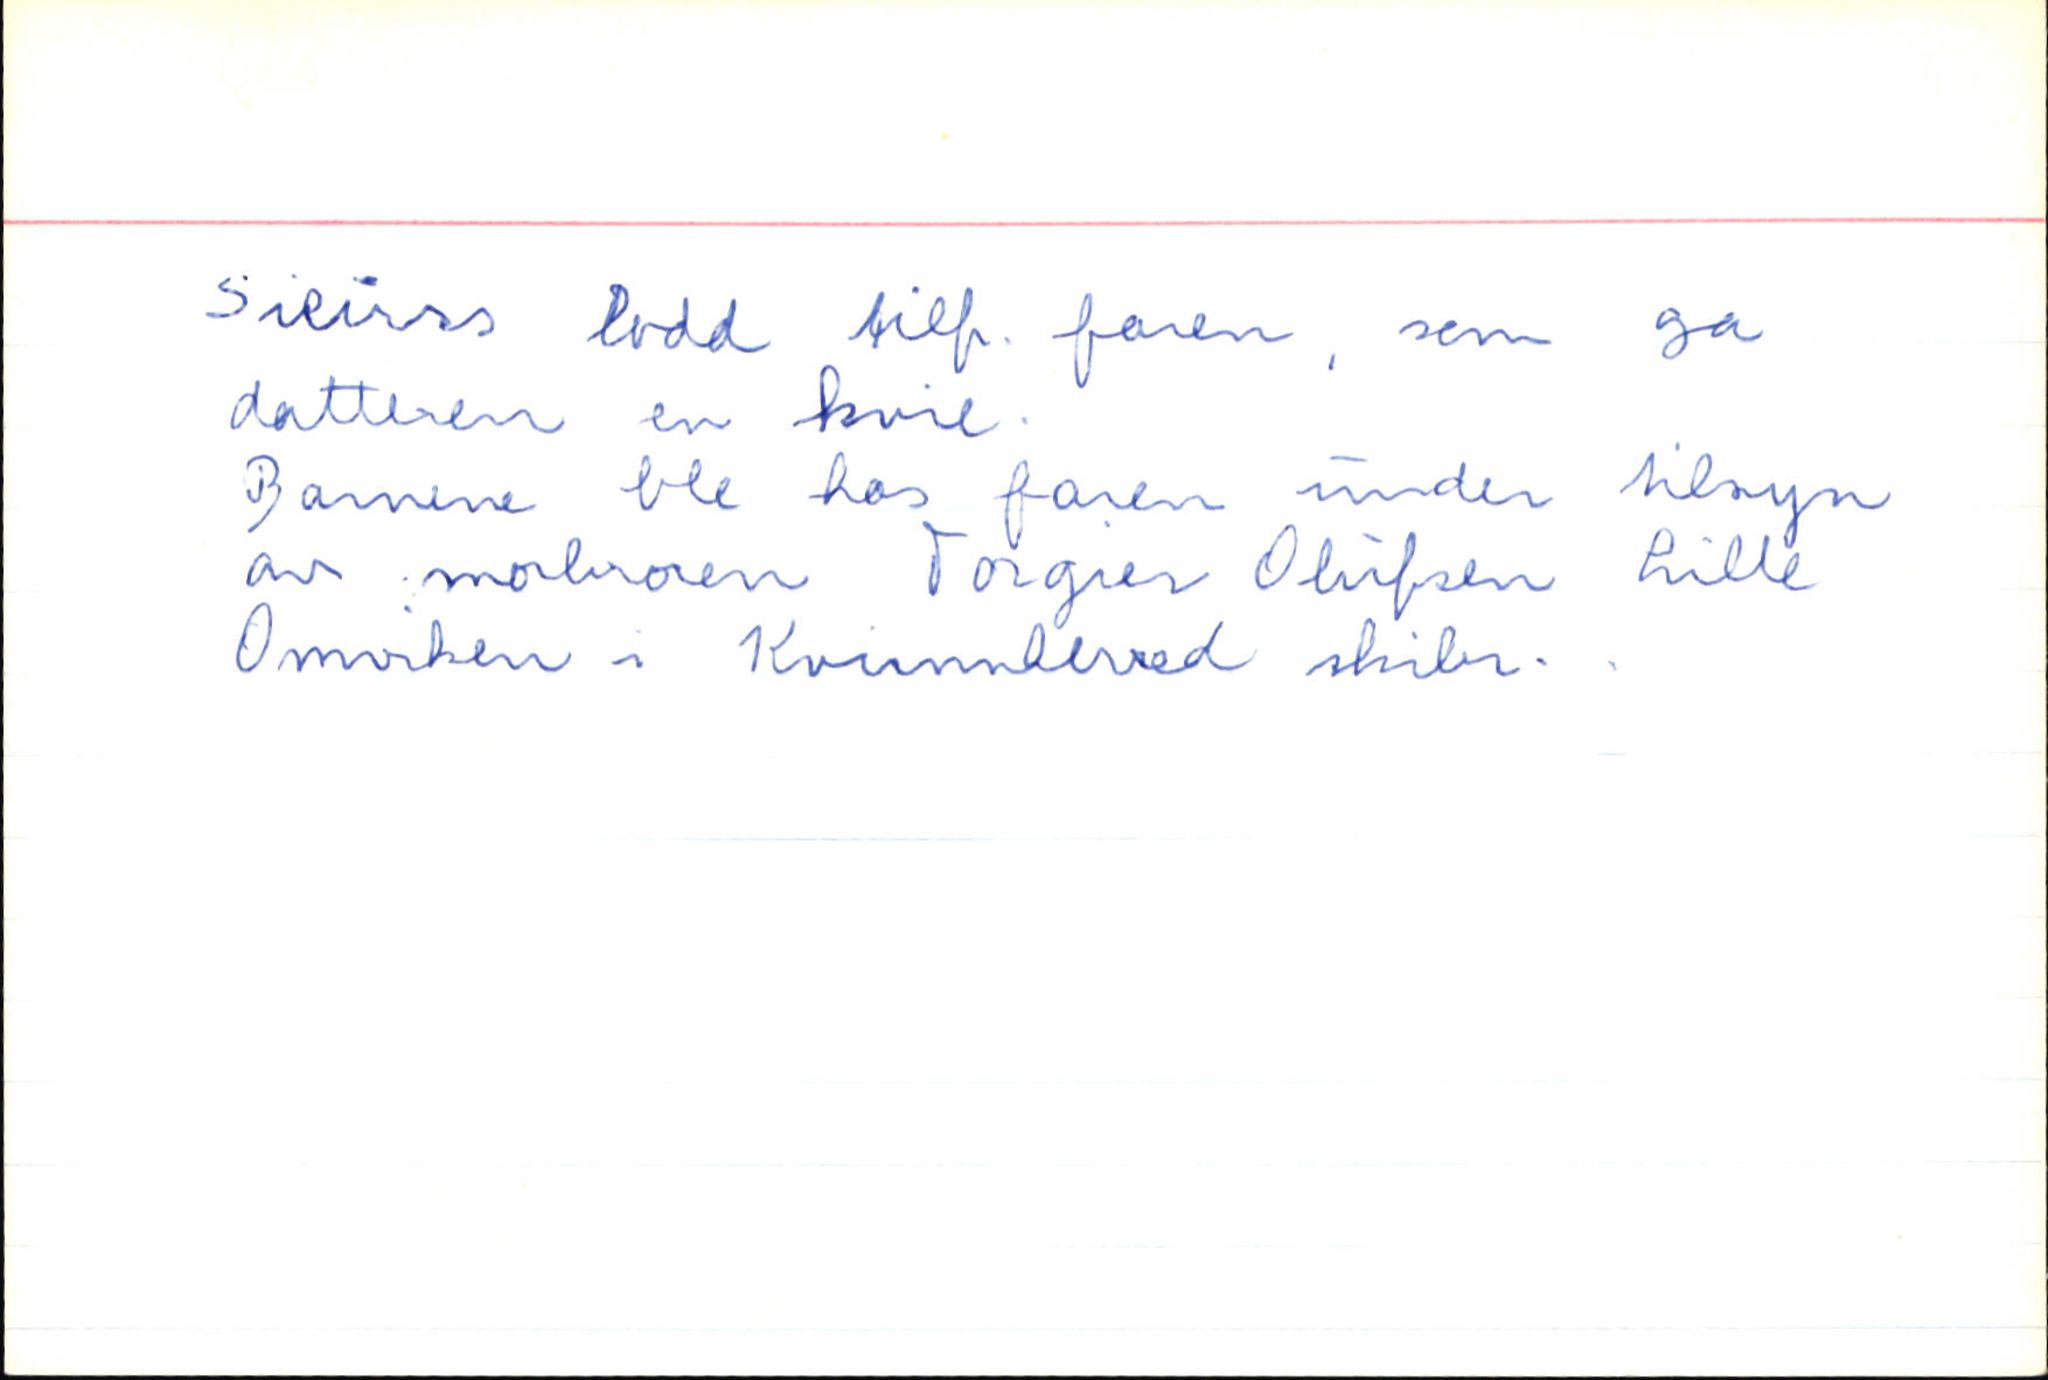 Siürs lodd tilf. faren, som ga
datteren en kvie.
Barnene ble hos faren under tilsyn
av morbroren Torgier Olufsen Lille
Omviken i Kvinnherred skibr.